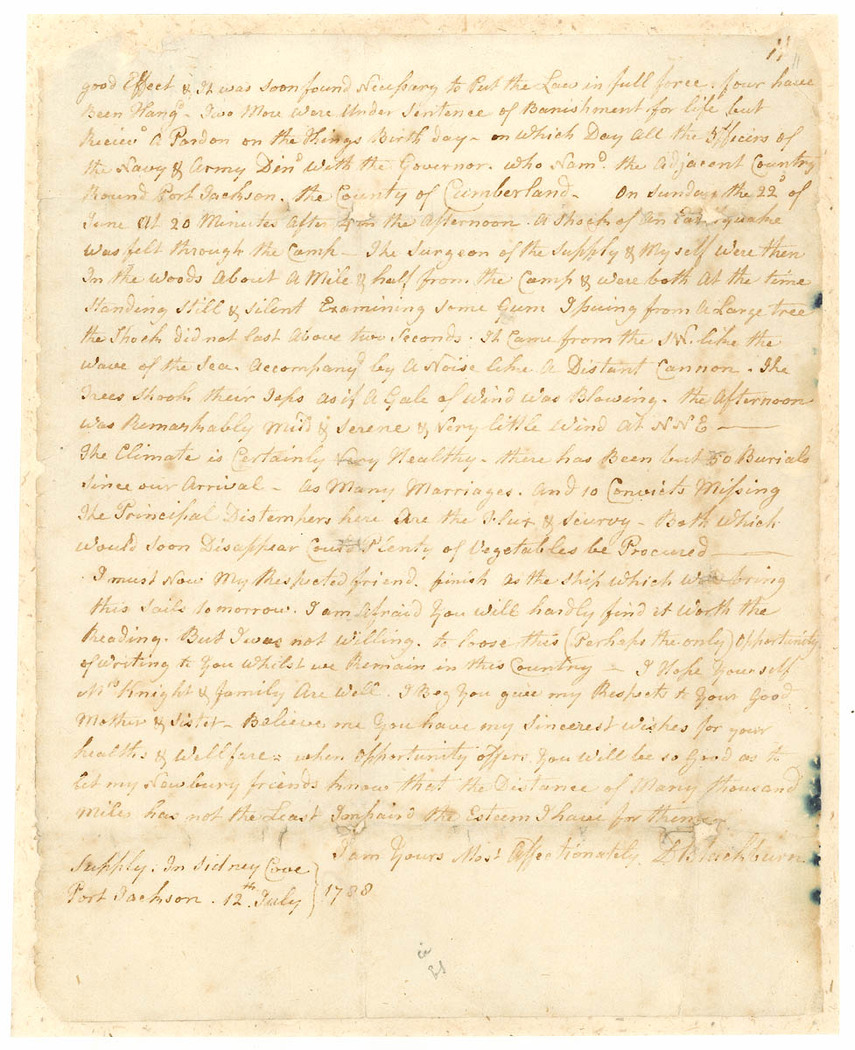 11
good Effect & It was soon found Necessary to Put the Law in full force. four have
Been Hangd - Two More were Under Sentence of Banishment for life but
Recievd A Pardon on the Kings Birth day - on which Day All the Officers of
the Navy & Army Dind with the Governor. who Namd. the Adjacent Country
Round Port Jackson. the County of Cumberland - On Sunday the 22d of
June At 20 Minutes After 4 in the Afternoon. A Shock of An Earthquake
was felt through the Camp - The Surgeon of the Supply & Myself were then
In the woods About A Mile & half from the Camp & were both At the time
Standing Still & Silent Examining Some Gum Issuing from A Large tree
the Shock did not last Above two Seconds. It Came from the SW. like the
wave of the Sea. Accompanyd by A Noise like A Distant Cannon. The
Trees Shook their Tops as if A Gale of Wind was Blowing. the Afternoon
was Remarkably Mild & Serene & Very little Wind at NNE
The Climate is Certainly Very Healthy - there has Been but 50 Burials
Since our Arrival - as Many Marriages. And 10 Convicts Missing
The Principal Distempers here Are the Flux & Scurvy - Both which
would Soon Disappear Could Plenty of Vegetables be Procured
I must Now My Respected friend. finish as the Ship which will bring
this Sails tomorrow. I am Afraid You will hardly find it worth the
Reading. But I was not willing. to loose this (Perhaps the only) Opportunity
of writing to You whilst we Remain in this Country - I Hope Yourself
Mrs Knight & family Are well. I Beg You give my Respects to Your Good
Mother & Sister - Believe me You have my Sincerest wishes for your
healths & wellfare - when Opportunity offers You will be so Good as to
let my Newbury friends know that the Distance of Many thousand
Miles has not the Least Impaird the Esteem I have for them
I am Yours Most Affectionately D Blackburn
Supply. In Sidney Cove
Port Jackson. 12th. July } 1788